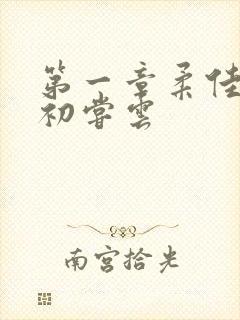 第一章柔佳
初尝雲
南宫拾光